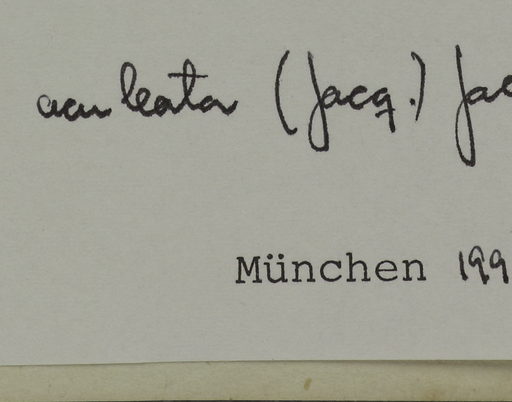 aculeata (Jacq.) Jac
München 199